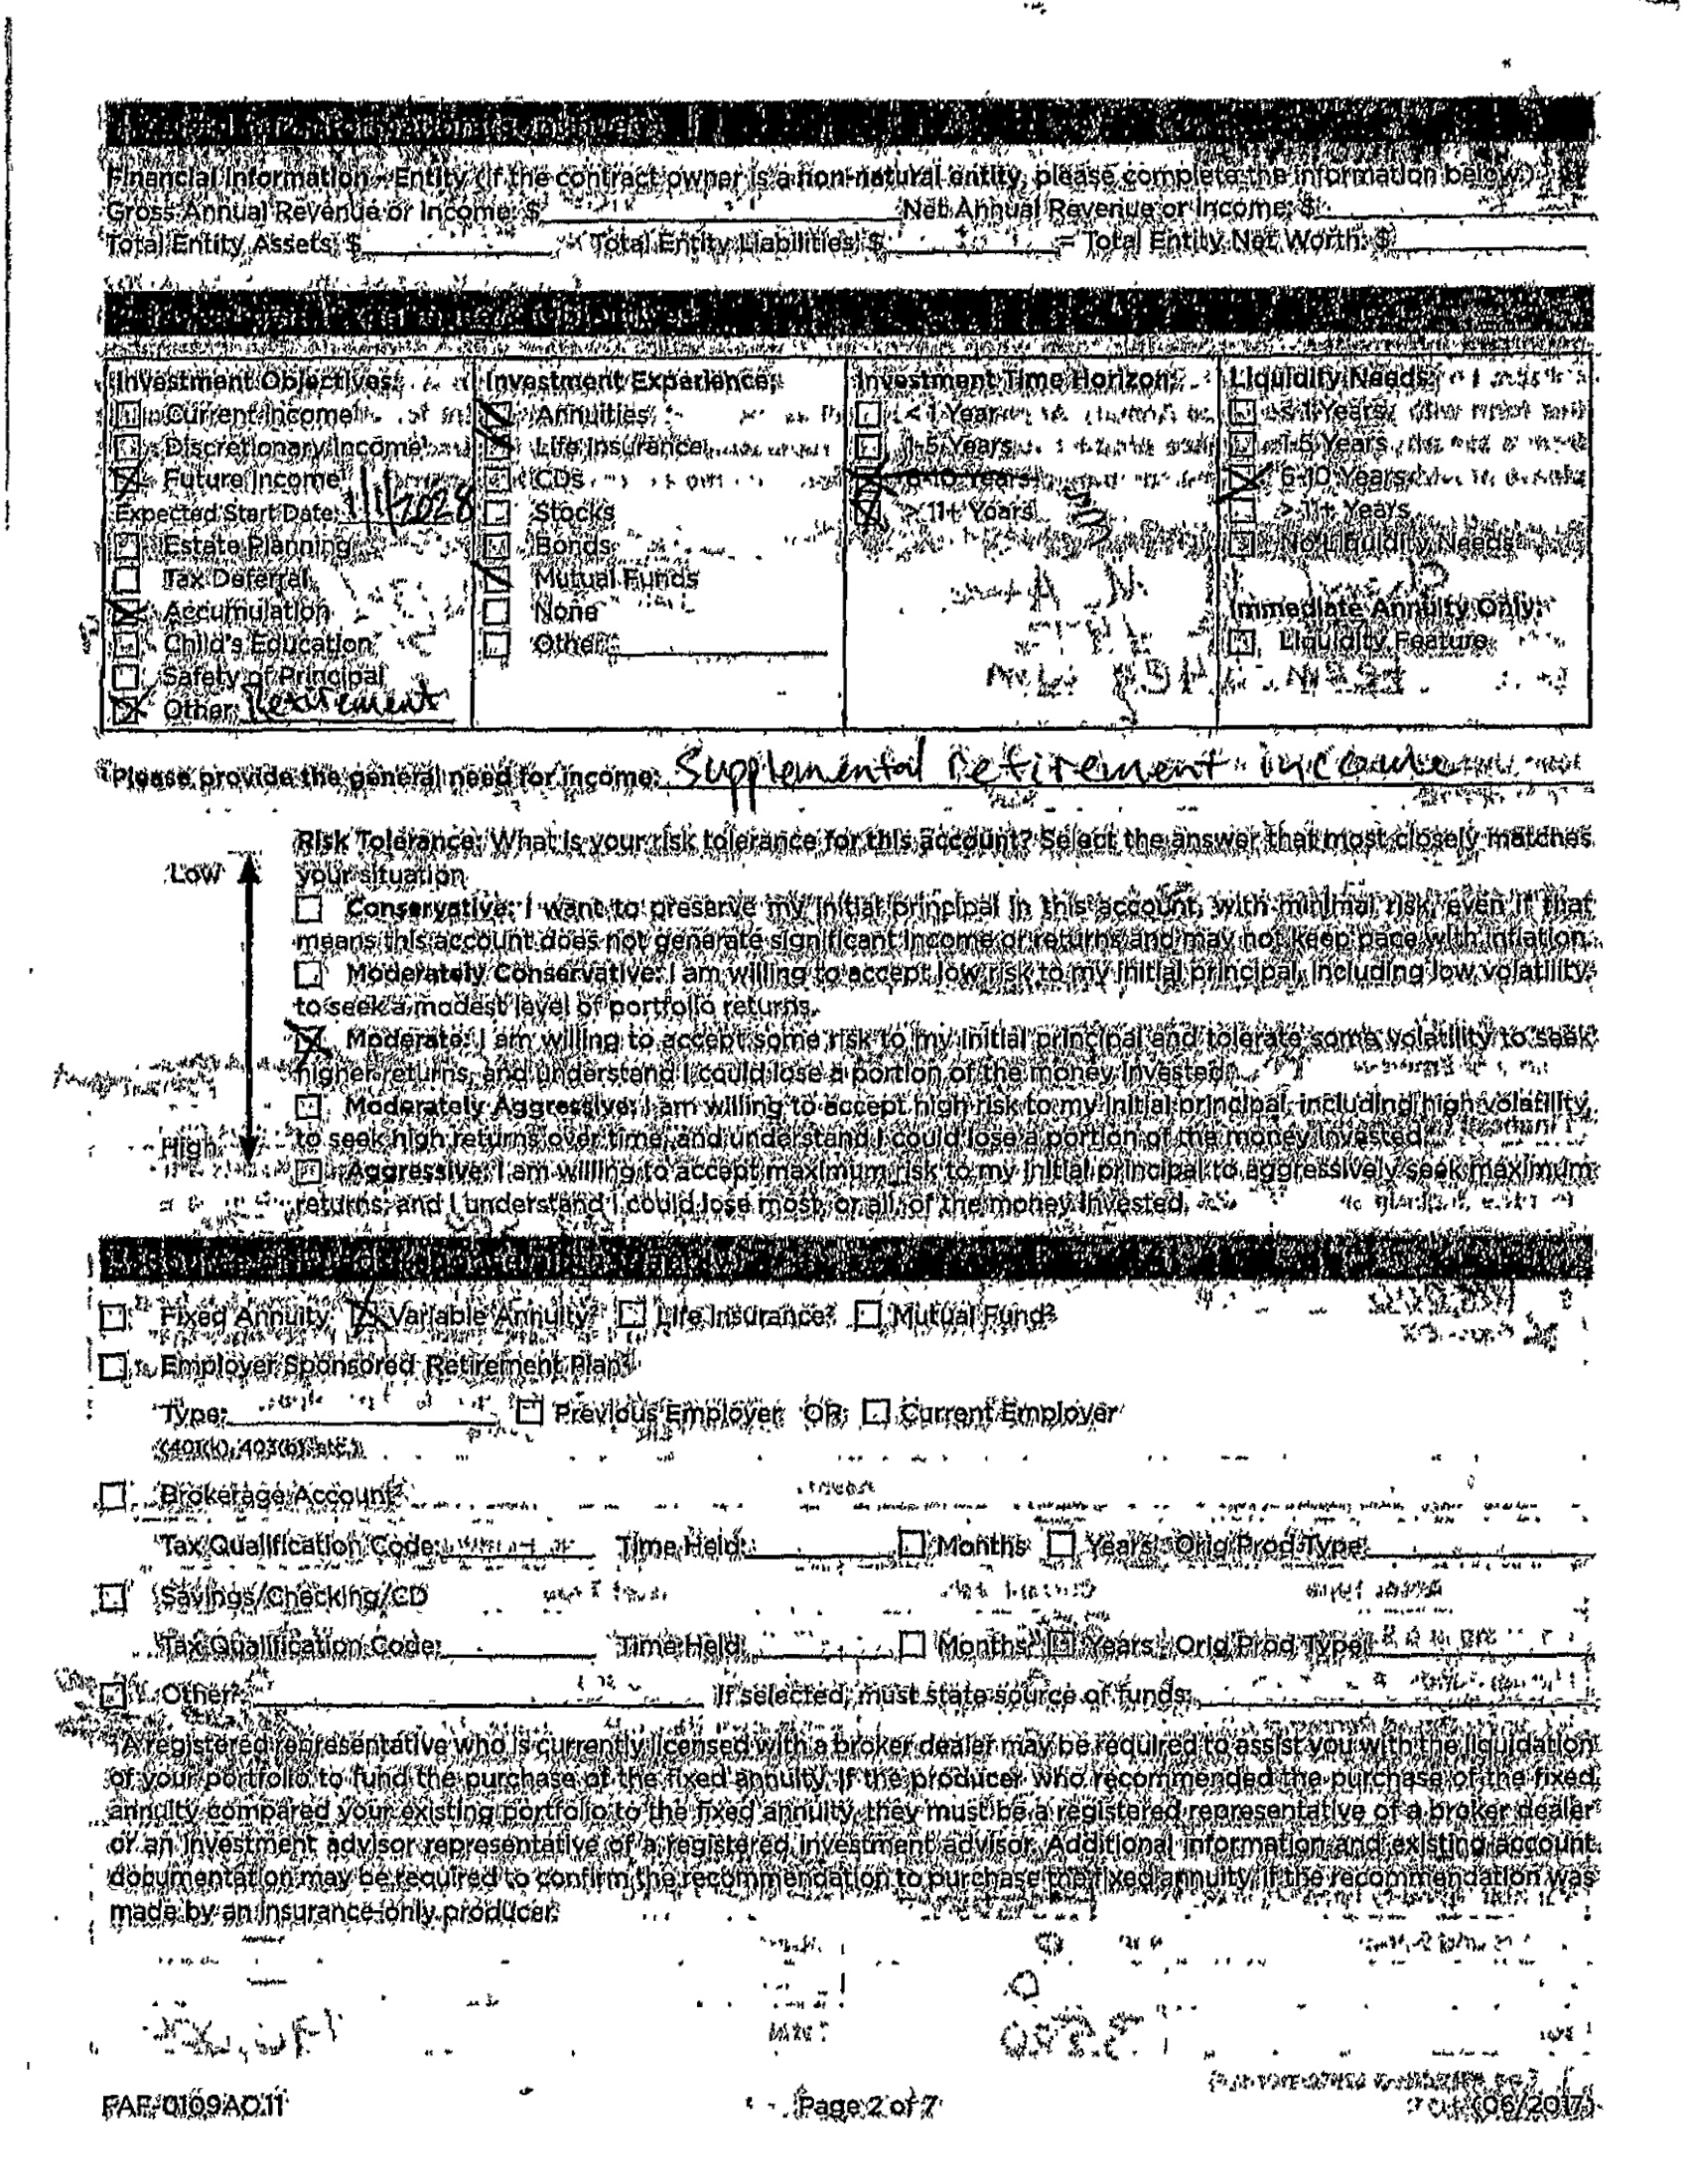 Financial Information - Entity (If the contract owner is a non-natural entity, please complete the information below.)
Gross Annual Revenue or Income: $ Net Annual Revenue or Income: $
Total Entity Assets: $ - Total Entity Liabilities: $ = Total Entity Net Worth: $
Investment Objectives:
☐ Current Income
☐ Discretionary Income
☒ Future Income
Expected Start Date: 1/1/2028
☐ Estate Planning
☐ Tax Deferral
☒ Accumulation
☐ Child's Education
☐ Safety of Principal
☒ Other: Retirement
Investment Experience:
☒ Annuities
☒ Life Insurance
☐ CDs
☐ Stocks
☐ Bonds
☒ Mutual Funds
☐ None
☐ Other:
Investment Time Horizon:
☐ < 1 Year
☐ 1-5 Years
☒ 6-10 Years
☒ > 11+ Years
Liquidity Needs:
☐ < 1 Years
☐ 1-5 Years
☒ 6-10 Years
☐ > 11+ Years
☐ No Liquidity Needs
Immediate Annuity Only:
☐ Liquidity Feature
Please provide the general need for income: Supplemental retirement income
Risk Tolerance: What is your risk tolerance for this account? Select the answer that most closely matches
your situation
Low
☐ Conservative: I want to preserve my initial principal in this account, with minimal risk, even if that
means this account does not generate significant income or returns and may not keep pace with inflation.
☐ Moderately Conservative: I am willing to accept low risk to my initial principal, including low volatility,
to seek a modest level of portfolio returns.
☒ Moderate: I am willing to accept some risk to my initial principal and tolerate some volatility to seek
higher returns, and understand I could lose a portion of the money invested.
☐ Moderately Aggressive: I am willing to accept high risk to my initial principal, including high volatility,
High
to seek high returns over time, and understand I could lose a portion of the money invested.
☐ Aggressive: I am willing to accept maximum risk to my initial principal to aggressively seek maximum
returns, and I understand I could lose most, or all, of the money invested.
☐ Fixed Annuity ☒ Variable Annuity² ☐ Life Insurance² ☐ Mutual Fund²
☐ Employer Sponsored Retirement Plan²
Type: ☐ Previous Employer OR ☐ Current Employer
(401(k), 403(b), etc.)
☐ Brokerage Account²
Tax Qualification Code: Time Held: ☐ Months ☐ Years Orig Prod Type:
☐ Savings/Checking/CD
Tax Qualification Code: Time Held: ☐ Months ☐ Years Orig Prod Type:
☐ Other: If selected, must state source of funds:
A registered representative who is currently licensed with a broker dealer may be required to assist you with the liquidation
of your portfolio to fund the purchase of the fixed annuity. If the producer who recommended the purchase of the fixed
annuity compared your existing portfolio to the fixed annuity, they must be a registered representative of a broker dealer
or an investment advisor representative of a registered investment advisor. Additional information and existing account
documentation may be required to confirm the recommendation to purchase the fixed annuity, if the recommendation was
made by an insurance-only producer.
FAF-0109AO.11 Page 2 of 7 (06/2017)